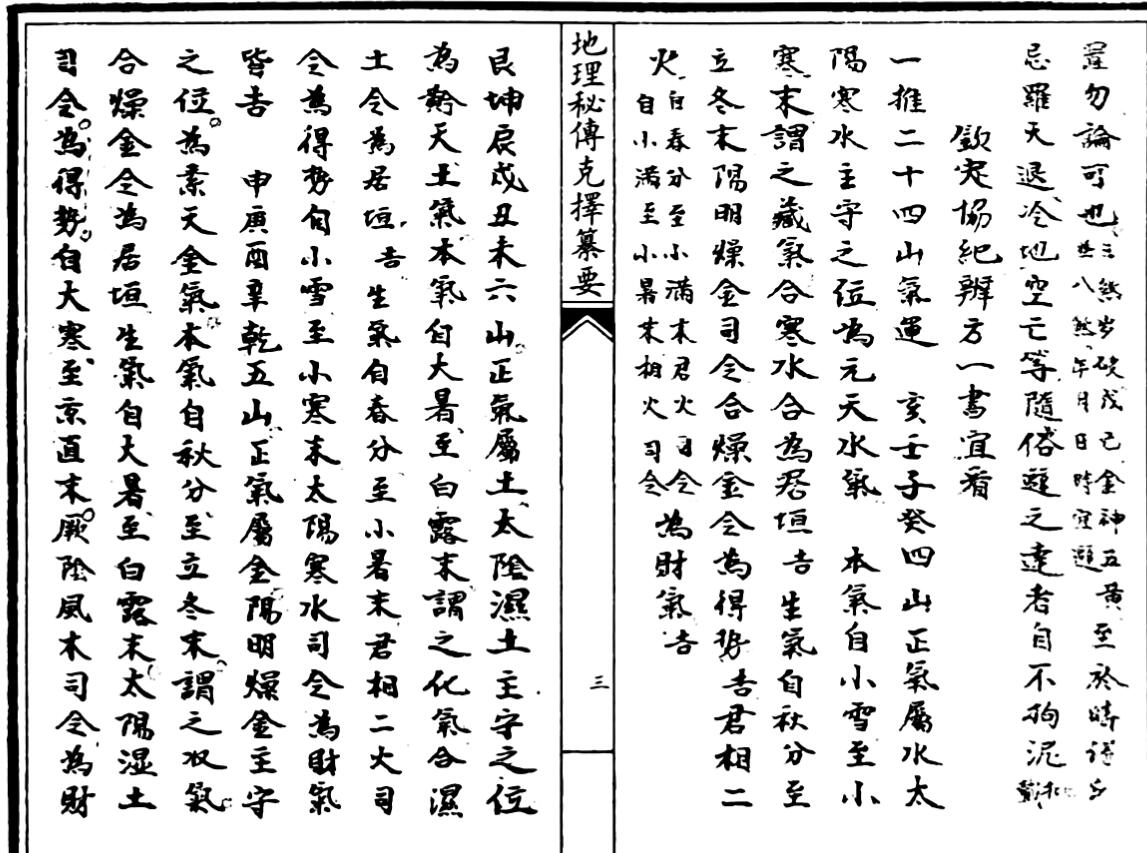 羅勿論可也三煞歲破戊己金神五黃至於時俗
並八煞年月日時宜避
忌羅天退冷地空亡等隨俗避之達者自不拘泥
欽定協紀辨方一書宜看
一推二十四山氣運 亥壬子癸四山正氣屬水太
陽寒水主守之位為元天水氣 本氣自小雪至小
寒末謂之藏氣合寒水合為居垣吉生氣自秋分至
立冬末陽明燥金司令合燥金令為得勢吉君相二
火自春分至小滿末君火司令
自小滿至小暑末相火司令為財氣吉
地理秘傳克擇纂要
三
艮坤辰戌丑未六山正氣屬土太陰濕土主守之位
為黅天土氣本氣自大暑至白露末謂之化氣合濕
土令為居垣吉生氣自春分至小暑末君相二火司
令為得勢自小雪至小寒末太陽寒水司令為財氣
皆吉 申庚酉辛乾五山正氣屬金陽明燥金主守
之位為素天金氣本氣自秋分至立冬末謂之收氣
合燥金令為居垣生氣自大暑至白露末太陽濕土
司令為得勢自大寒至京直末厥陰風木司令為財